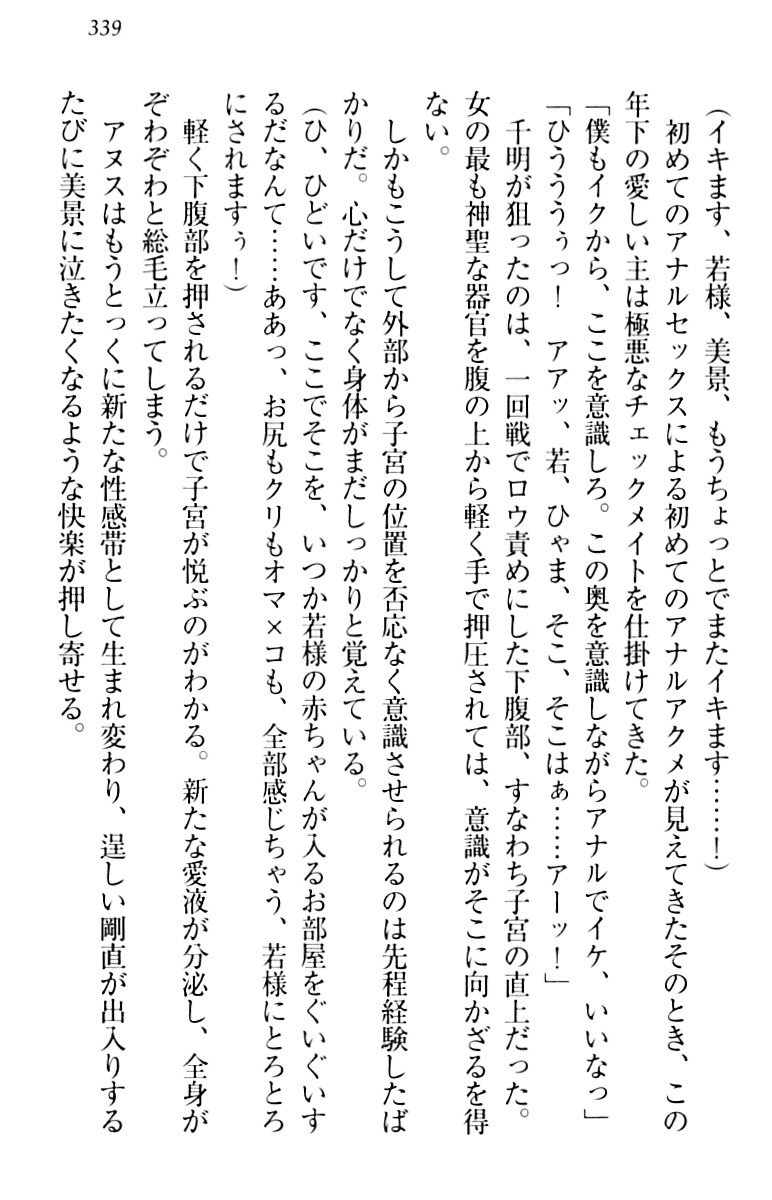 339
(イキます、若様、美景、もうちょっとでまたイキます……!)
初めてのアナルセックスによる初めてのアナルアクメが見えてきたそのとき、この
年下の愛しい主は極悪なチェックメイトを仕掛けてきた。
「僕もイクから、ここを意識しろ。この奥を意識しながらアナルでイケ、いいなっ」
「ひうううぅっ! アアッ、若、ひゃま、そこ、そこはぁ……アーッ!」
千明が狙ったのは、一回戦でロウ責めにした下腹部、すなわち子宮の直上だった。
女の最も神聖な器官を腹の上から軽く手で押圧されては、意識がそこに向かざるを得
ない。
しかもこうして外部から子宮の位置を否応なく意識させられるのは先程経験したば
かりだ。心だけでなく身体がまだしっかりと覚えている。
(ひ、ひどいです、ここでそこを、いつか若様の赤ちゃんが入るお部屋をぐいぐいす
るだなんて……ああっ、お尻もクリもオマ×コも、全部感じちゃう、若様にとろとろ
にされますぅ!)
軽く下腹部を押されるだけで子宮が悦ぶのがわかる。新たな愛液が分泌し、全身が
ぞわぞわと総毛立ってしまう。
アヌスはもうとっくに新たな性感帯として生まれ変わり、逞しい剛直が出入りする
たびに美景に泣きたくなるような快楽が押し寄せる。